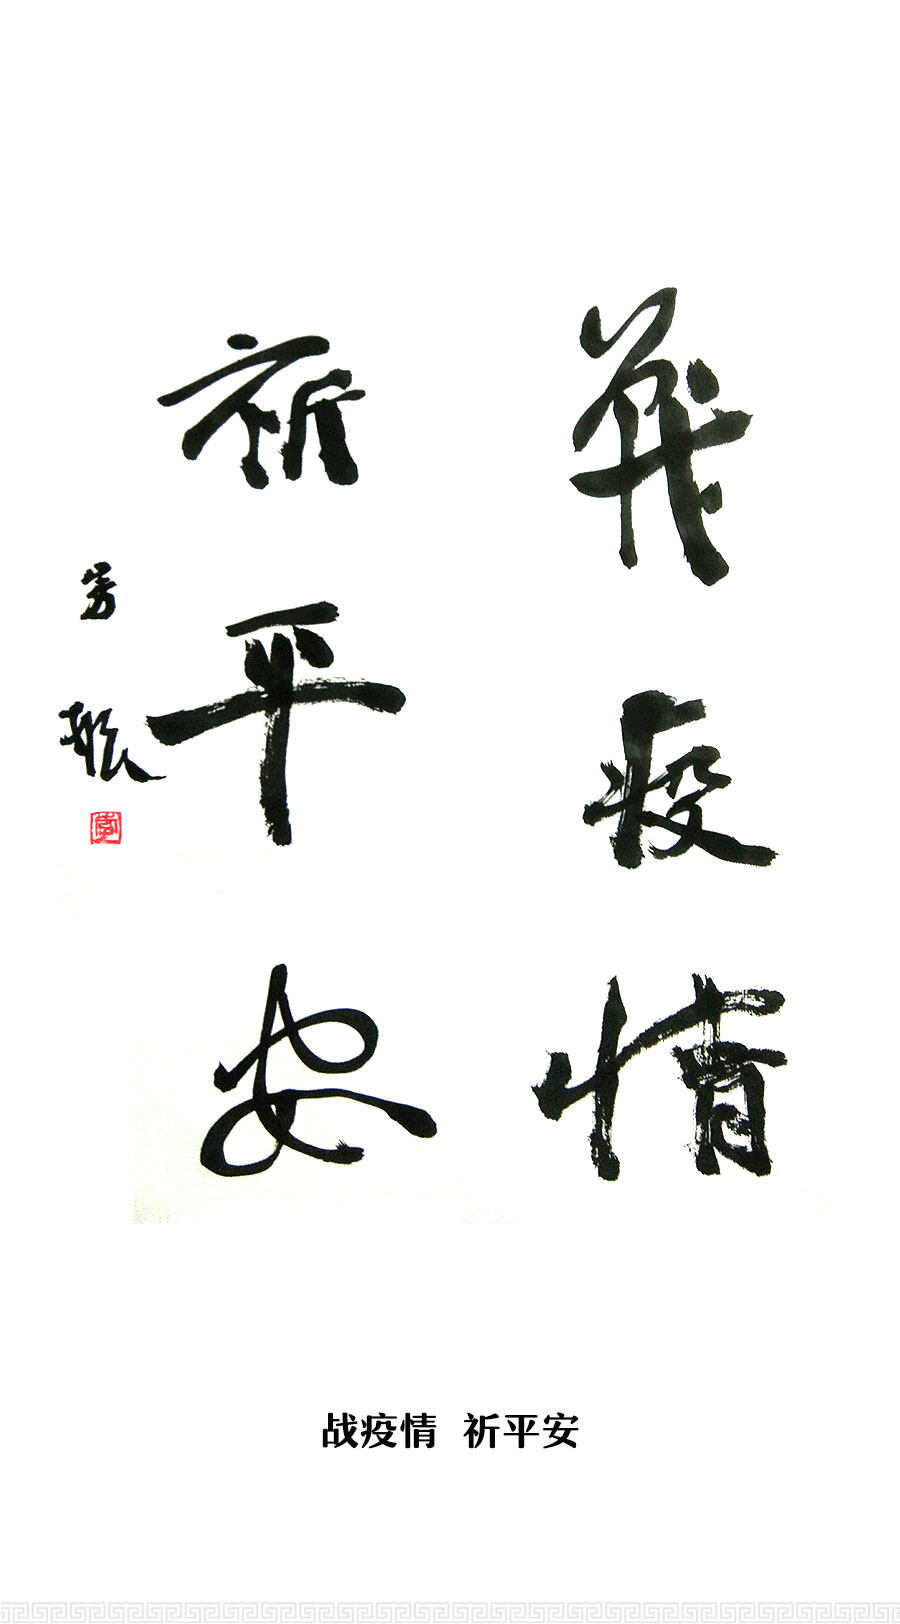 戰疫情
祈平安
战疫情 祈平安